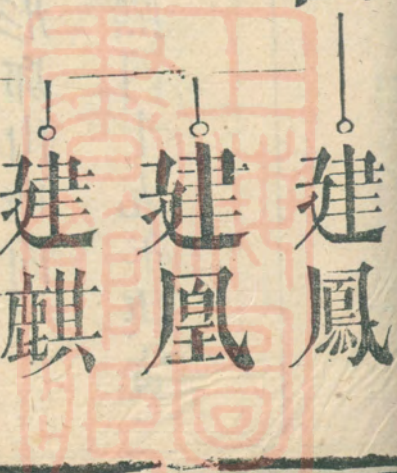 建鳳
建凰
建麒